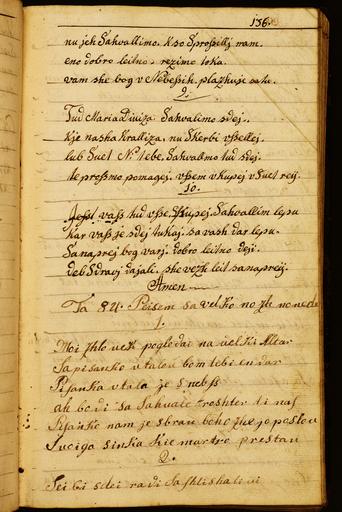 136.
nu jeh Sahvallimo. K so Sprossillj nam.
eno dobro leitno, rezimo toka.
vam she bog v Nebessih. plazhuje
9.
Tud Maria Diviza. Sahvalimo sdej.
Kje nasha Kralliza, nu Skerbi vssellej.
lub Suet N. tebe, Sahvalimo tud sdej.
te prossmo pomagej. vssem vkupej v Suet reij
10.
Jesst vass tud vsse Skupej. Sahvallim lepu
Kar vass je sdej tukaj. sa vash dar lepu.
Sanaprej bog varj. dobro leitno deji.
deb Sdravj dajali. she vezh leit sanapreij.
Amen
Ta 84. Peisem sa velko nozh no nedel
1.
Moi zhlovek pogledai na velki Altar
Sapisanko vtalou bom tebi en dar
Pisanka vtala je Snebss
ah bodi Sa hvale troshter ti nas
Pisanko nam je sbrau boh zhe jo poslou
Suoiga sinka Kie martro prestau
2.
Sei bi sdei radi Sashlishali